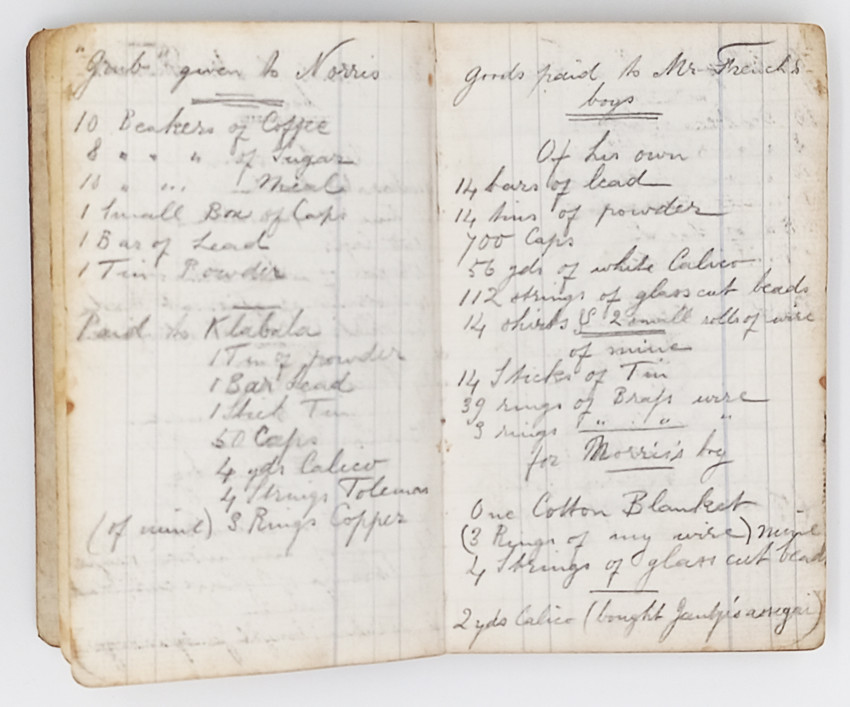 "Grub" given to Norris
10 Beakers of Coffee
8 " " " of Sugar
10 " " " Meal
1 Small Box of Caps
1 Bar of Lead
1 Tin Powder
Paid to Klabala
1 Tin of powder
1 Bar Lead
1 Stick Tin
50 Caps
4 yds Calico
4 Strings
(of mine) 3 Rings Copper
Goods paid to Mr French's
boys
Of his own
14 bars of lead
14 tins of powder
700 Caps
56 yds of white Calico
112 strings of glass cut beads
14 shirts & 2 small rolls of wire
of mine
14 Sticks of Tin
39 rings of Brass wire
3 rings " " "
for Morris's boy
One Cotton Blanket
(3 Rings of my wire) mine
4 Strings of glass cut beads
2 yds Calico (bought assegai)